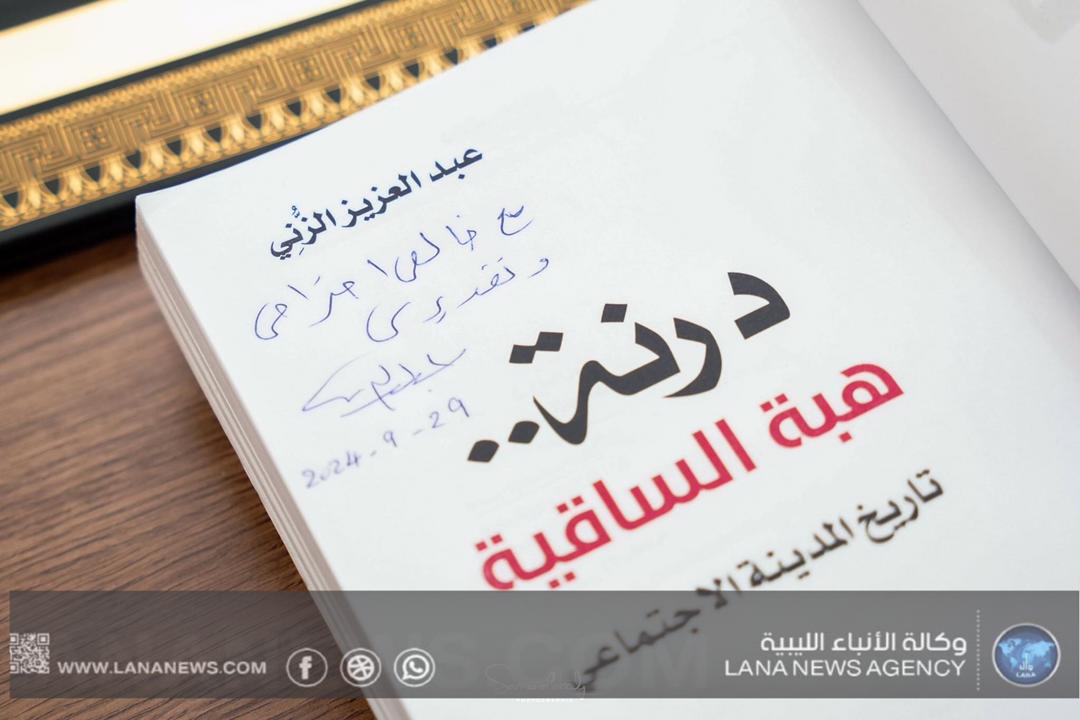 عبد العزيز الزُّني
مع خالص احترامي
وتقديري
29-9-2024
درنة..
هبة الساقية
تاريخ المدينة الاجتماعي
وكالة الأنباء الليبية
LANA NEWS AGENCY
LANA
WWW.LANANEWS.COM